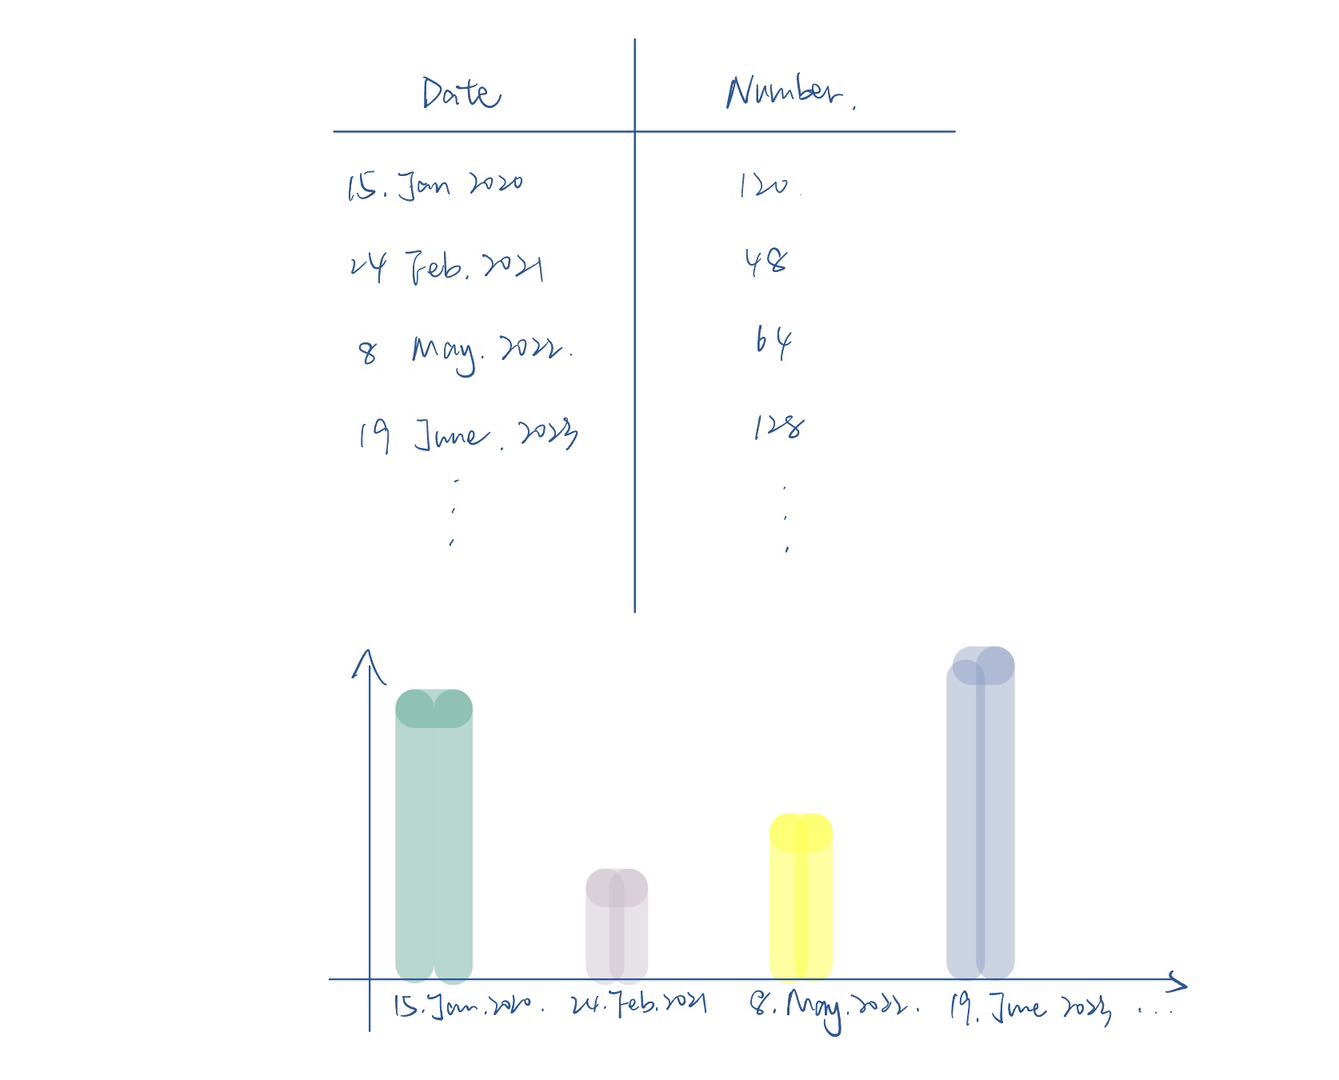 Date Number.
15. Jan 2020 120.
24 Feb. 2021 48
8 May. 2022. 64
19 June. 2023 128
15. Jan. 2020. 24. Feb. 2021 8. May. 2022. 19. June 2023 ...